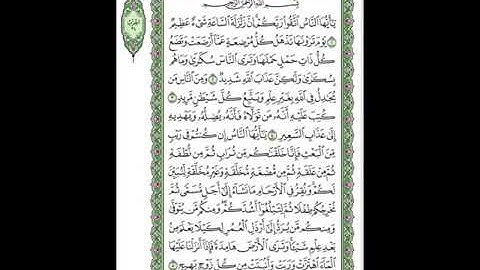 بِسْمِ ٱللَّهِ ٱلرَّحْمَٰنِ ٱلرَّحِيمِ
يَٰٓأَيُّهَا ٱلنَّاسُ ٱتَّقُوا۟ رَبَّكُمْ إِنَّ زَلْزَلَةَ ٱلسَّاعَةِ شَىْءٌ عَظِيمٌ
١ يَوْمَ تَرَوْنَهَا تَذْهَلُ كُلُّ مُرْضِعَةٍ عَمَّآ أَرْضَعَتْ وَتَضَعُ
كُلُّ ذَاتِ حَمْلٍ حَمْلَهَا وَتَرَى ٱلنَّاسَ سُكَٰرَىٰ وَمَا هُم
بِسُكَٰرَىٰ وَلَٰكِنَّ عَذَابَ ٱللَّهِ شَدِيدٌ ٢ وَمِنَ ٱلنَّاسِ مَن
يُجَٰدِلُ فِى ٱللَّهِ بِغَيْرِ عِلْمٍ وَيَتَّبِعُ كُلَّ شَيْطَٰنٍ مَّرِيدٍ ٣
كُتِبَ عَلَيْهِ أَنَّهُۥ مَن تَوَلَّاهُ فَأَنَّهُۥ يُضِلُّهُۥ وَيَهْدِيهِ
إِلَىٰ عَذَابِ ٱلسَّعِيرِ ٤ يَٰٓأَيُّهَا ٱلنَّاسُ إِن كُنتُمْ فِى رَيْبٍ
مِّنَ ٱلْبَعْثِ فَإِنَّا خَلَقْنَٰكُم مِّن تُرَابٍ ثُمَّ مِن نُّطْفَةٍ
ثُمَّ مِنْ عَلَقَةٍ ثُمَّ مِن مُّضْغَةٍ مُّخَلَّقَةٍ وَغَيْرِ مُخَلَّقَةٍ لِّنُبَيِّنَ
لَكُمْ وَنُقِرُّ فِى ٱلْأَرْحَامِ مَا نَشَآءُ إِلَىٰٓ أَجَلٍ مُّسَمًّى ثُمَّ
نُخْرِجُكُمْ طِفْلًا ثُمَّ لِتَبْلُغُوٓا۟ أَشُدَّكُمْ وَمِنكُم مَّن يُتَوَفَّىٰ
وَمِنكُم مَّن يُرَدُّ إِلَىٰٓ أَرْذَلِ ٱلْعُمُرِ لِكَيْلَا يَعْلَمَ مِنۢ
بَعْدِ عِلْمٍ شَيْـًٔا وَتَرَى ٱلْأَرْضَ هَامِدَةً فَإِذَآ أَنزَلْنَا عَلَيْهَا
ٱلْمَآءَ ٱهْتَزَّتْ وَرَبَتْ وَأَنۢبَتَتْ مِن كُلِّ زَوْجٍۭ بَهِيجٍ ٥